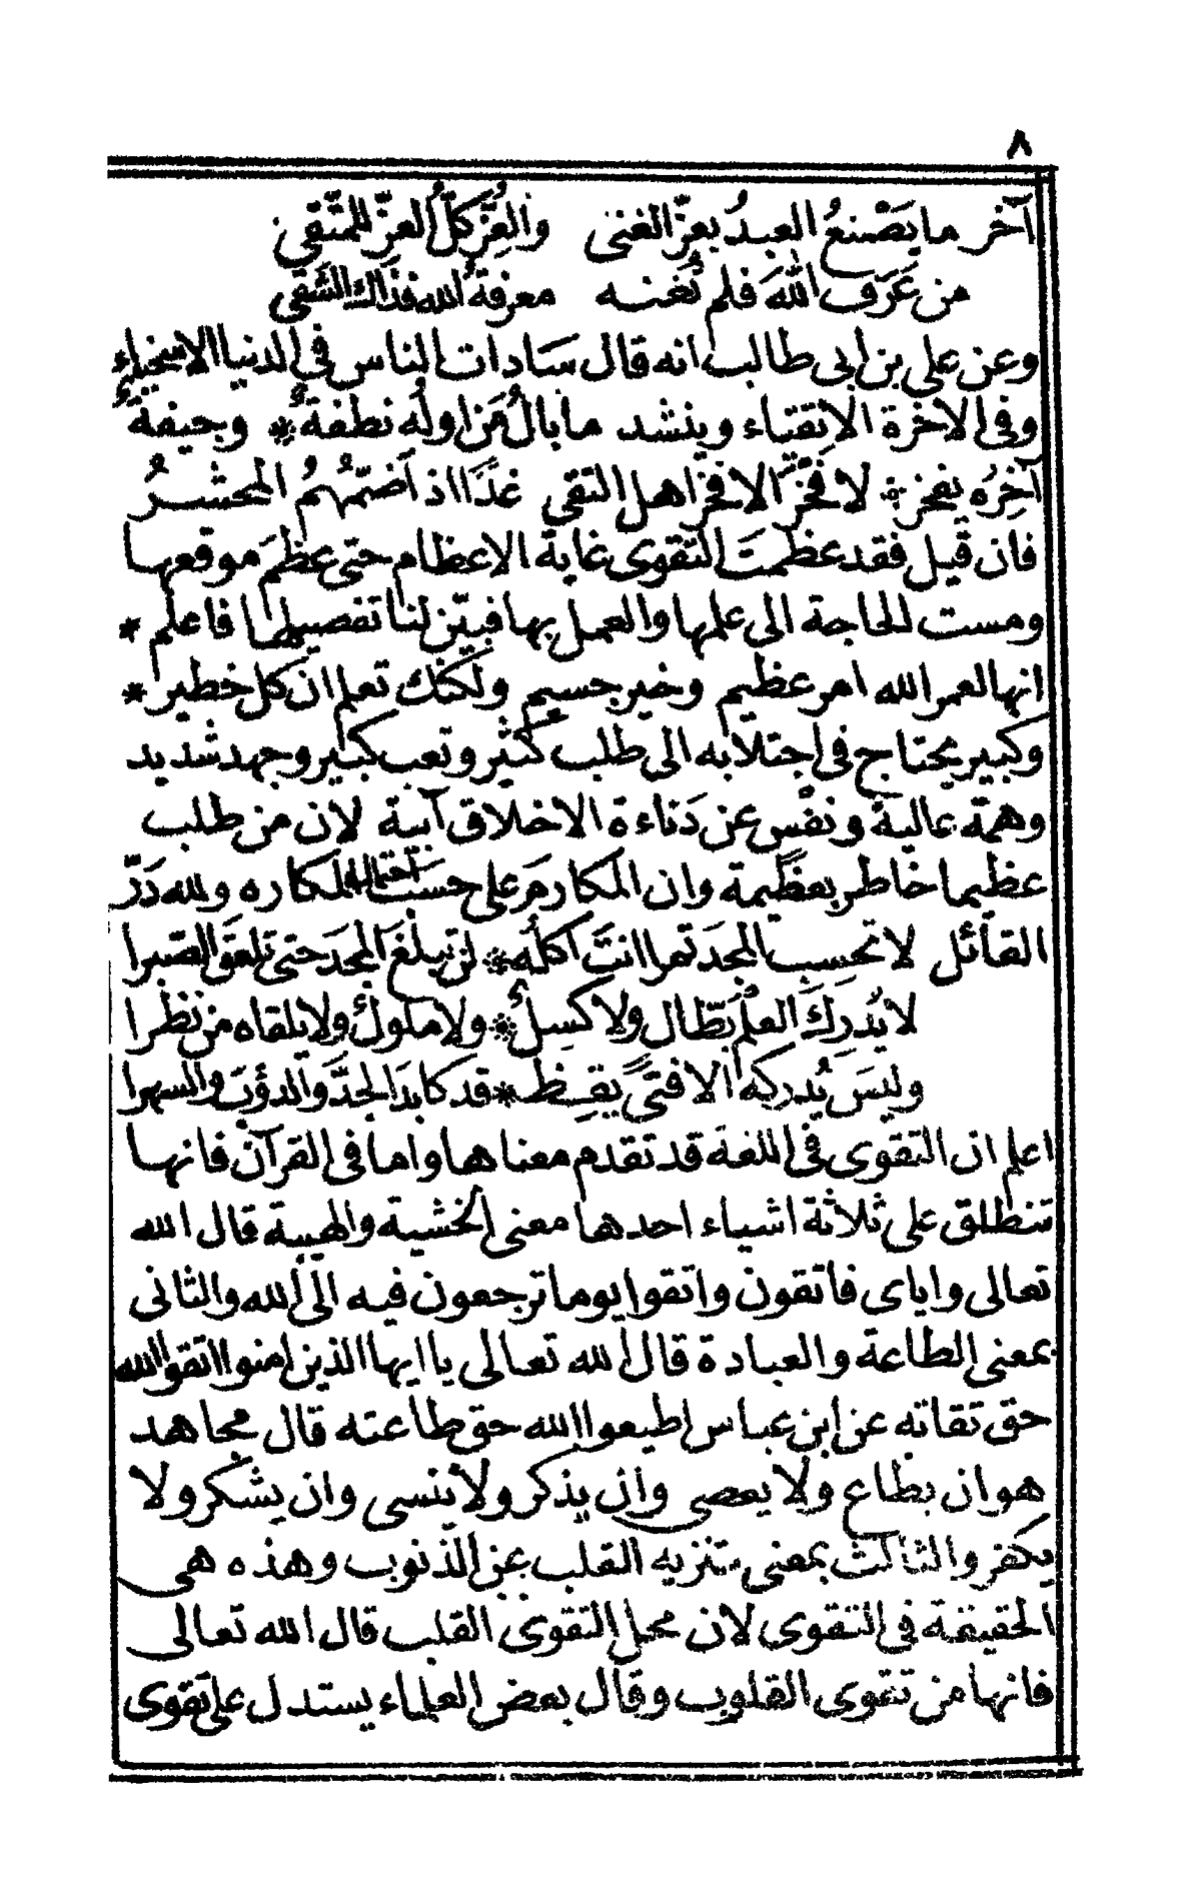 ٨
آخر ما يَصْنعُ العبدُ بعزّ الغنى والعِزُّ كلُّ العزّ للمتّقى
من عَرَف اللهَ فلم تُغنه معرفةُ الله فذاك الشقى
وعن على بن ابى طالب انه قال سَادات الناس فى الدنيا الاسخياء
وفى الآخرة الاتقياء وينشد ما بالُ مَن اوله نطفةٌ * وجيفةٌ
آخِرُه يفخر * لا فَخْرَ الا فخر اهل التقى غدًا اذ اضمّهُمُ المحشرُ
فان قيل فقد عظمتَ التقوى غاية الاعظام حتى عظمَ موقعها
ومست الحاجة الى علمها والعمل بها فبيّن لنا تفصيلها فاعلم *
انها لعمر الله امر عظيم وخير جسيم ولكنك تعلم ان كل خطير *
وكبير يحتاج فى اجتلابه الى طلب كثير وتعب كبير وجهد شديد
وهمة عالية ونفْس عن دَناءة الاخلاق آبية لان من طلب
عظيما خاطر بعظيمة وان المكارمَ على حسَب احتمال المكاره ولله دَرّ
القائل لا تحسِبِ المجدَ تمرا انتَ آكلُه * لن تبلغَ المجدَ حتى تلعَق الصّبرا
لا يُدرِكَ العلمَ بطّال ولا كسِلٌ * ولا ملولٌ ولا يلقاه من نظرا
وليسَ يُدركه الا فتًى يقِظ * قد كابدَ الجدَّ والدؤبَ والسهرا
اعلم ان التقوى فى اللغة قد تقدم معناها واما فى القرآن فانها
تنطلق على ثلاثة اشياء احدها معنى الخشية والهيبة قال الله
تعالى واياى فاتقون واتقوا يوما ترجعون فيه الى الله والثانى
بمعنى الطاعة والعبادة قال الله تعالى يا ايها الذين امنوا اتقوا الله
حق تقاته عن ابن عباس اطيعوا الله حق طاعته قال مجاهد
هو ان يطاع ولا يعصى وان يذكر ولا ينسى وان يشكر ولا
يكفر والثالث بمعنى تنزيه القلب عن الذنوب وهذه هى
الحقيقة فى التقوى لان محل التقوى القلب قال الله تعالى
فانها من تقوى القلوب وقال بعض العلماء يستدل على تقوى